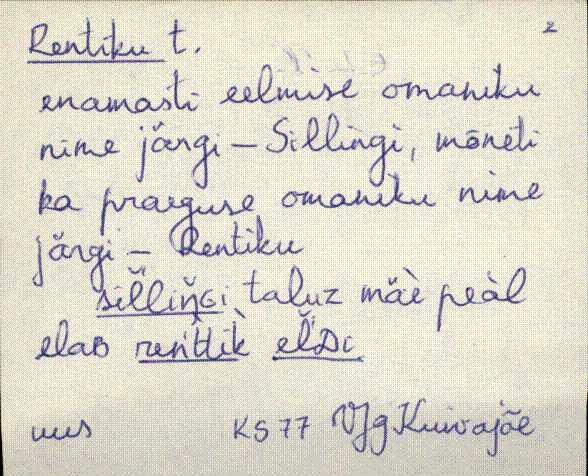 2
Rentiku t.
enamasti eelmise omaniku
nime järgi – Sillingi, mõneti
ka praeguse omaniku nime
järgi – Rentiku
sil̆liŋ̆Gi taluz mäè peàl
elaB
uus KS 77 VJg Kuivajõe